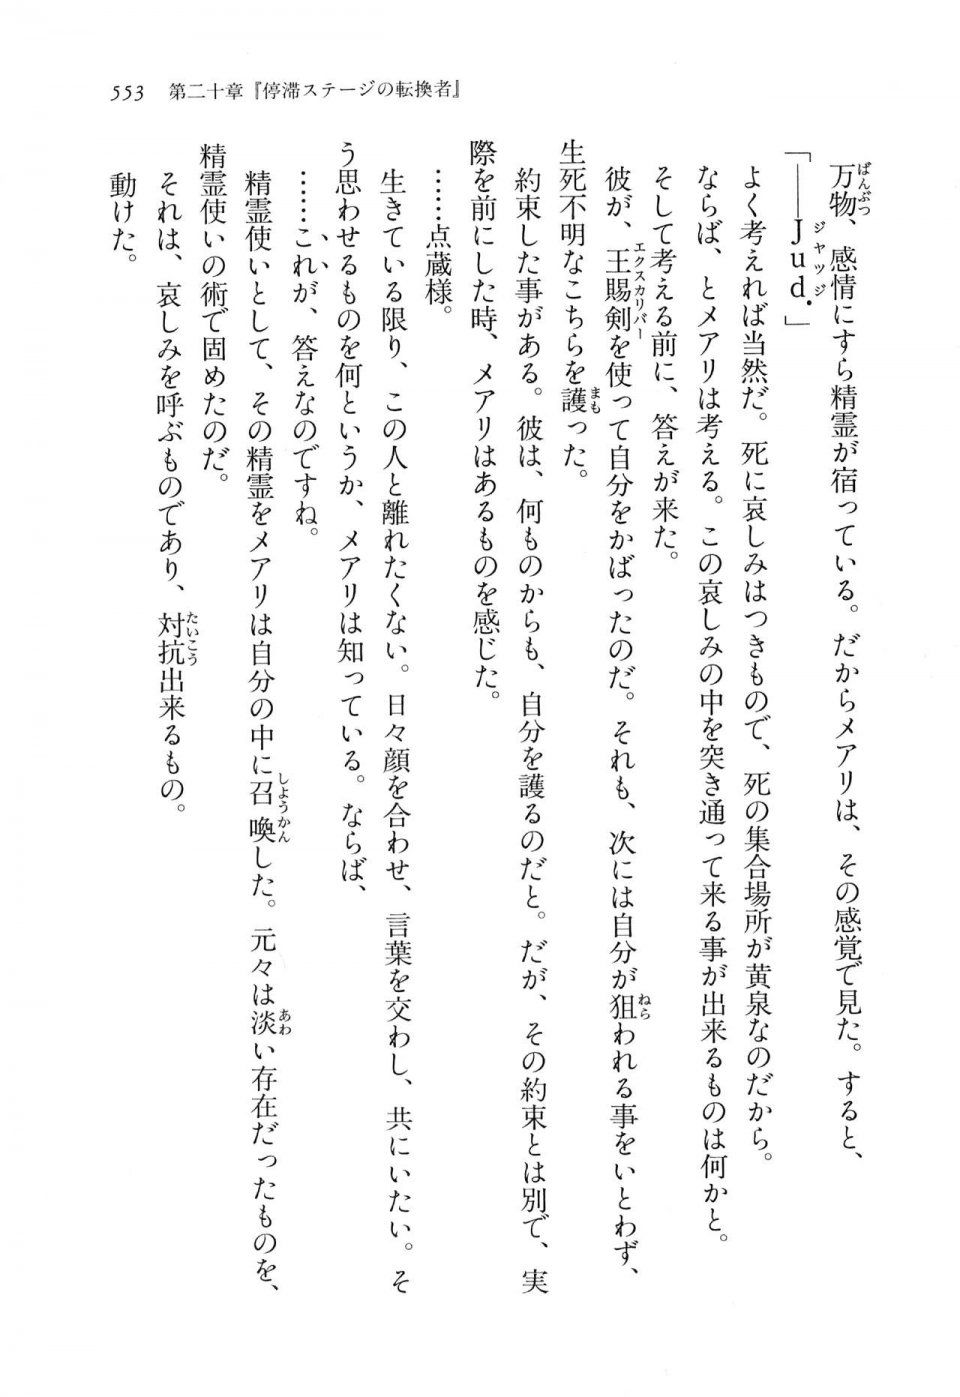 553　第二十章『停滞ステージの転換者』
　万物、感情にすら精霊が宿っている。だからメアリは、その感覚で見た。すると、
「――Jud.」
　よく考えれば当然だ。死に哀しみはつきもので、死の集合場所が黄泉なのだから。
　ならば、とメアリは考える。この哀しみの中を突き通って来る事が出来るものは何かと。
　そして考える前に、答えが来た。
　彼が、王賜剣を使って自分をかばったのだ。それも、次には自分が狙われる事をいとわず、
生死不明なこちらを護った。
　約束した事がある。彼は、何ものからも、自分を護るのだと。だが、その約束とは別で、実
際を前にした時、メアリはあるものを感じた。
　……点蔵様。
　生きている限り、この人と離れたくない。日々顔を合わせ、言葉を交わし、共にいたい。そ
う思わせるものを何というか、メアリは知っている。ならば、
　……これが、答えなのですね。
　精霊使いとして、その精霊をメアリは自分の中に召喚した。元々は淡い存在だったものを、
精霊使いの術で固めたのだ。
　それは、哀しみを呼ぶものであり、対抗出来るもの。
　動けた。